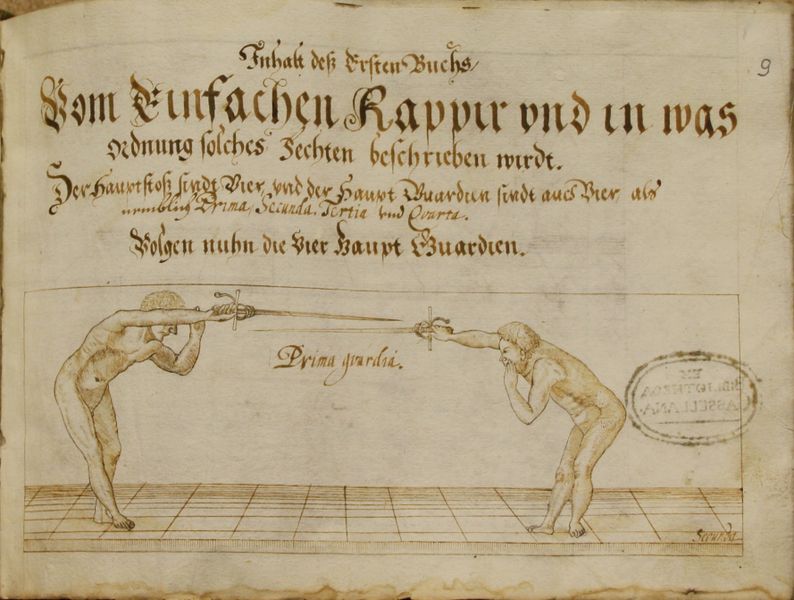 9
Inhalt deß Ersten Buchs/
Vom Einfachen Rappir vnd in was
ordnung solches Fechten beschrieben wirdt.
Der Hauptstoß sindt Vier, vnd der Haupt Guardien sindt auch Vier, als
nemblich Prima, Secunda. Tertia vnd Quarta.
Volgen nuhn die Vier Haupt Guardien.
Prima guardia.
EX
BIBLIOTHECA
CASSELLANA
Secunda